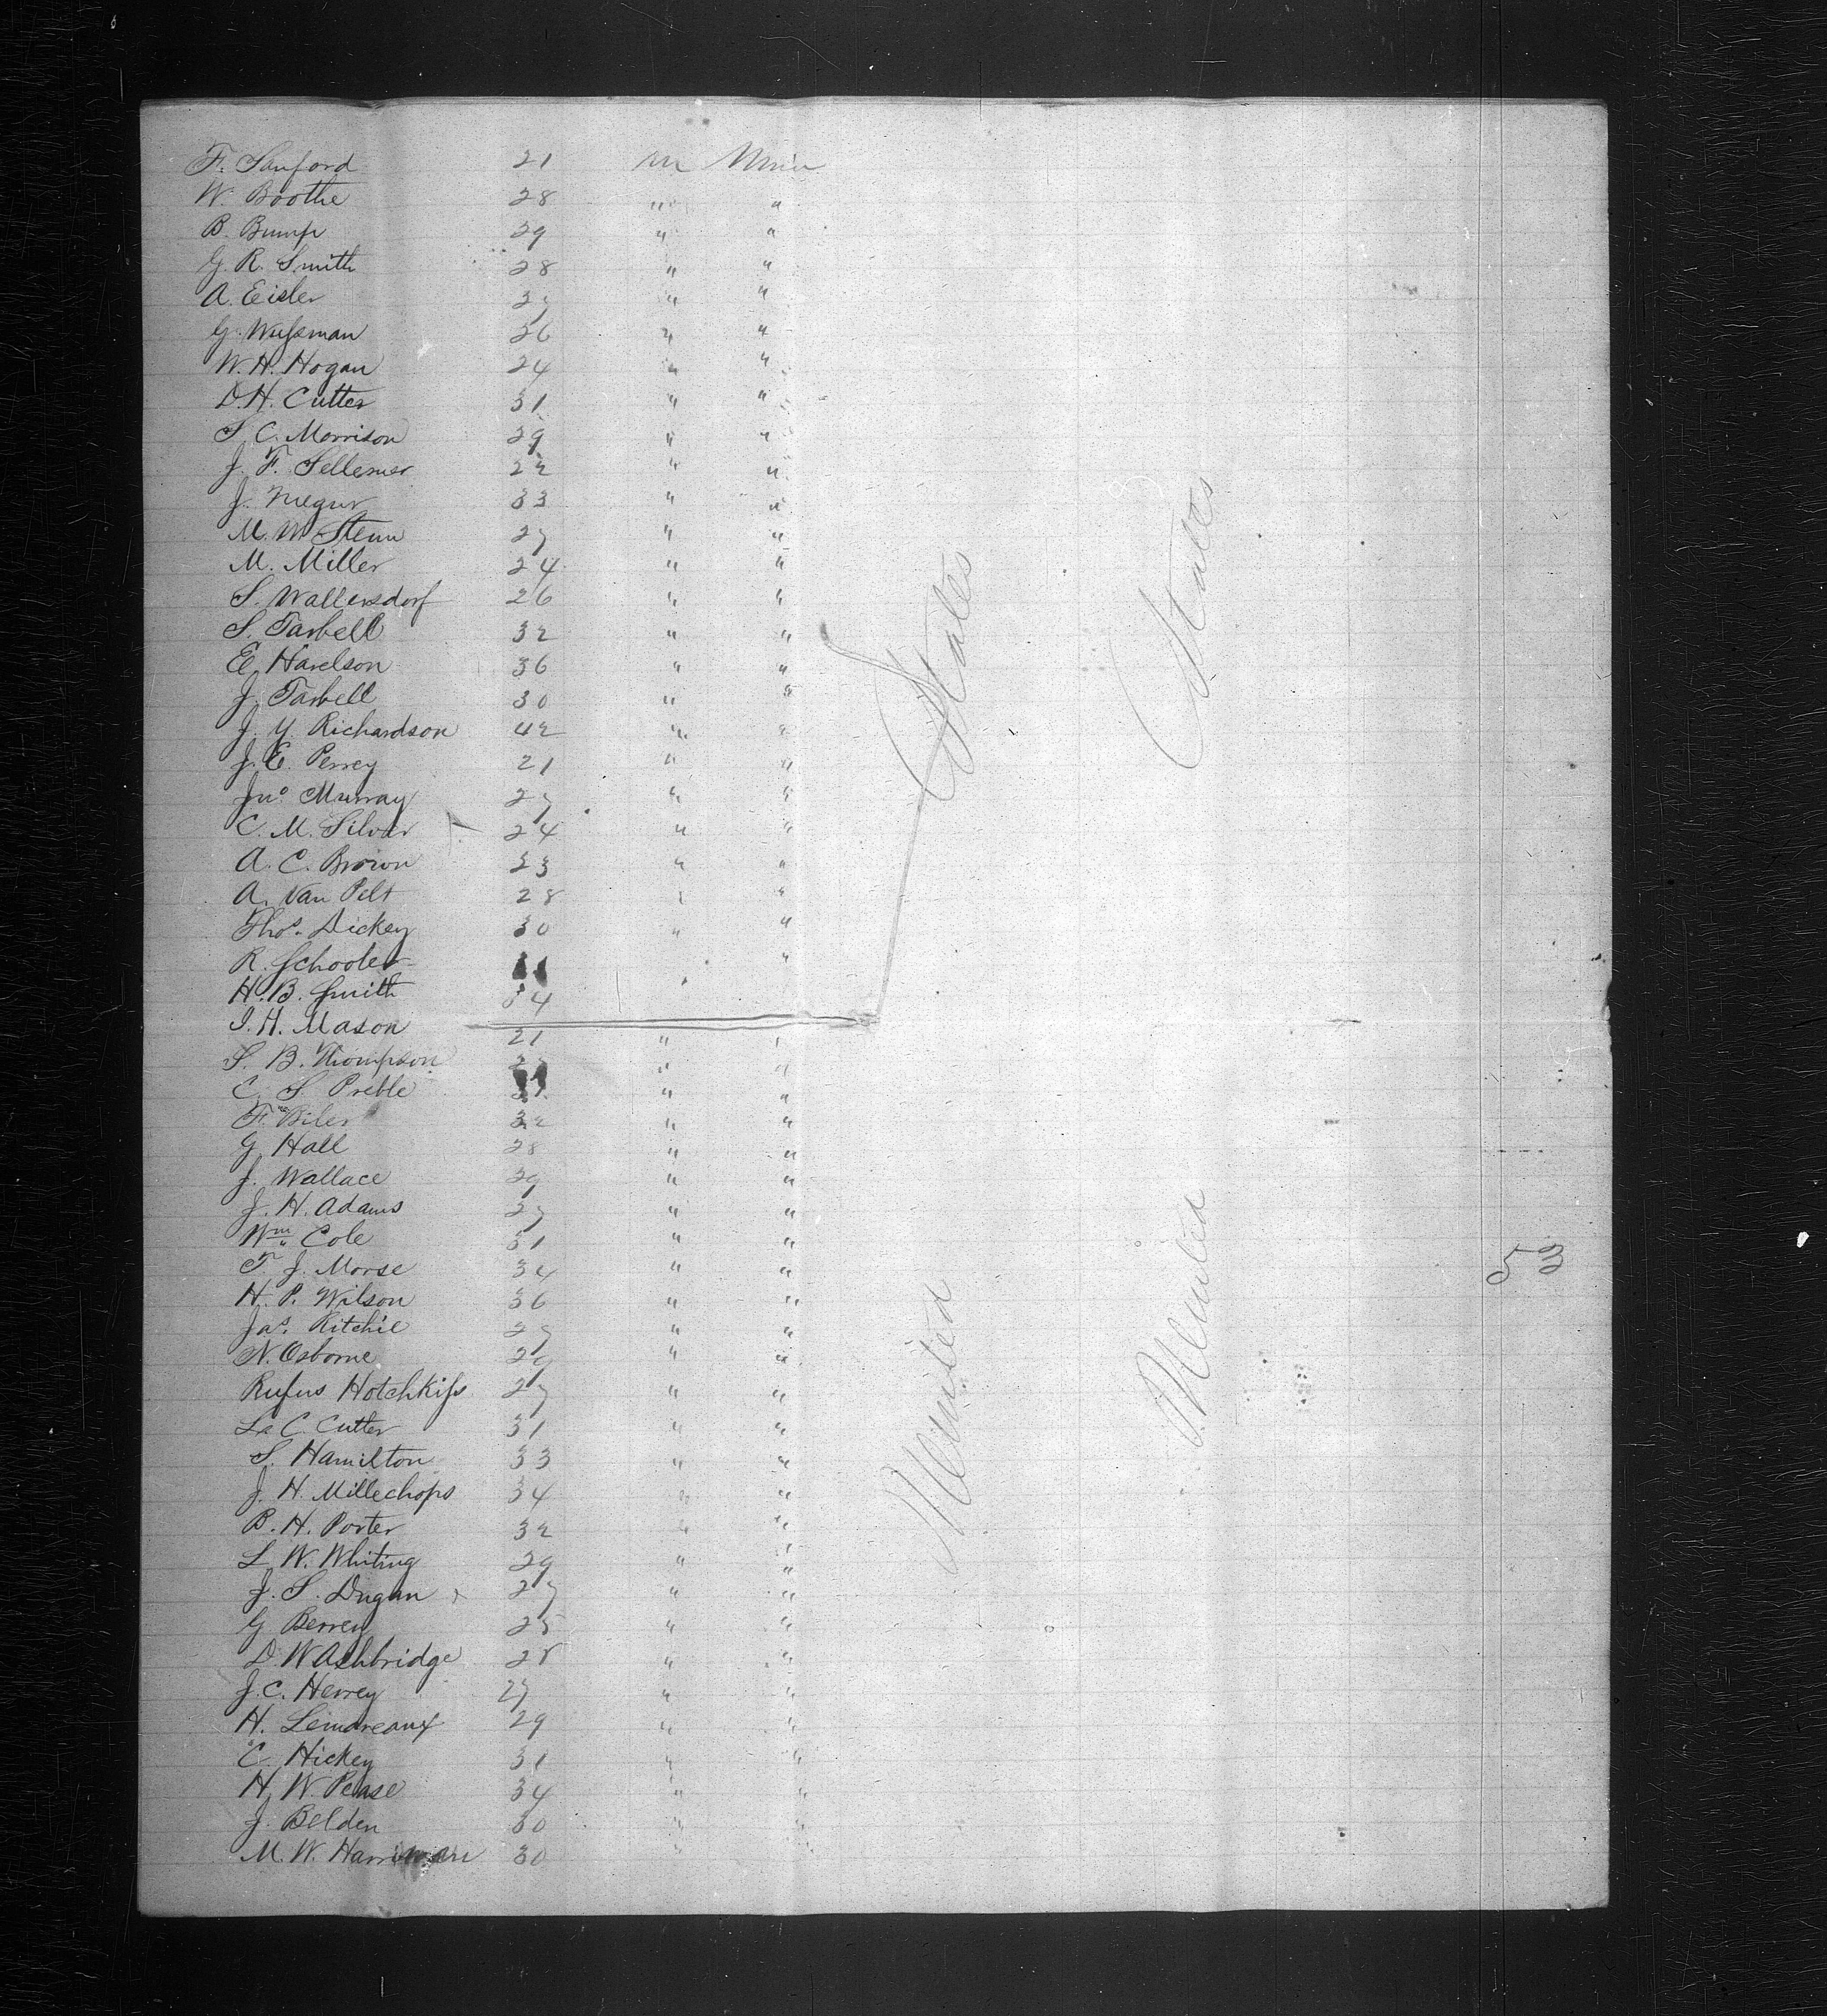 F. Sanford 21 m Miner
W. Boothe 28 " "
B. Bump 29 " "
G. R. Smith 28 " "
A. Eisler 27 " "
G. Wussman 36 " "
W. H. Hogan 24 " "
D. H. Cutter 31 " "
S. C. Morrison 29 " "
J. F. Sellemer 22 " "
J. 33 " "
M. W. Stenn 27 " "
M. Miller 24 " "
S. Wallersdorf 26 " "
S. Tarbell 32 " "
E. Harelson 36 " "
J. Tarbell 30 " "
J. Y. Richardson 42 " "
J. E. Perrey 21 " "
Jno. Murray 27 " "
C. M. Silver 24 " "
A. C. Brown 23 " "
A. Van Pelt 28 " "
Thos. Dickey 30 " "
R. Schooler "
H. B. Smith 34
I. H. Mason 21 " "
S. B. Thompson " "
C. S. Preble " "
F. Biler 32 " "
G. Hall 28 " "
J. Wallace 29 " "
J. H. Adams 27 " "
Wm. Cole 31 " "
T. J. Morse 34 " "
H. P. Wilson 36 " "
Jas. Ritchie 27 " "
N. Osborne 29 " "
Rufus Hotchkiss 27 " "
La C. Cutter 31 " "
S. Hamilton 33 " "
J. H. Millechops 34 " "
B. H. Porter 32 " "
L. W. Whiting 29 " "
J. S. Dugan x 27 " "
G. Berrey 25 " "
D. W. Ashbridge 28 " "
J. C. Henrey 27 " "
H. Lemoreaux 29 " "
C. Hickey 31 " "
H. W. Pease 34 " "
J. Belden 30 " "
M. W. Harriman 30 " "
United States
United States
53